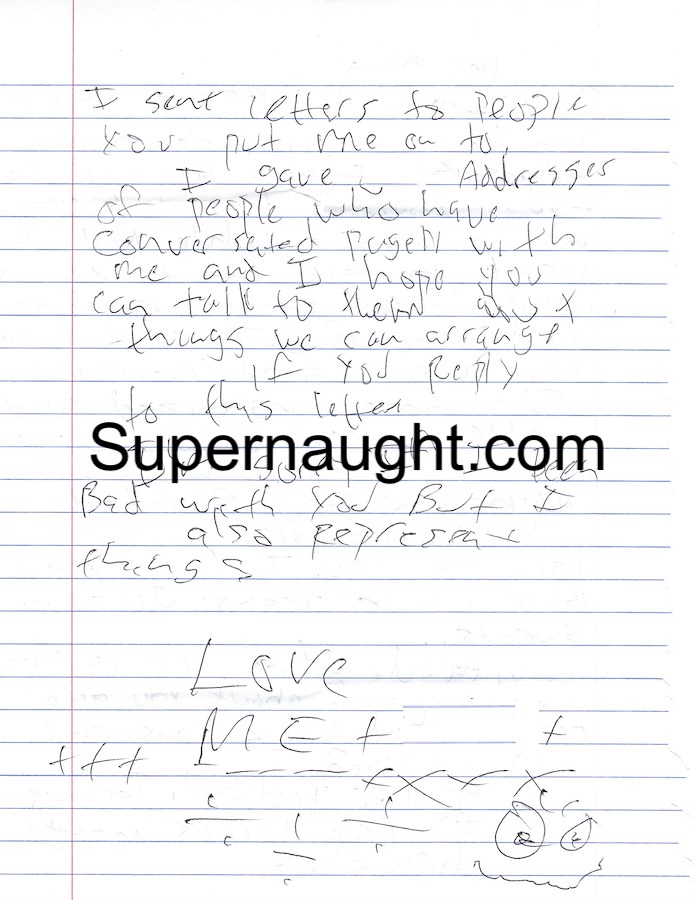 I sent letters to people
You put me on to,
I gave Addresses
of people who have
conversated with
me and I hope you
can talk to them
things we can arrange
if you Reply
to this letter
Supernaught.com
I been
Bad with you But I
also Represent
things
Love
ME + +
+++